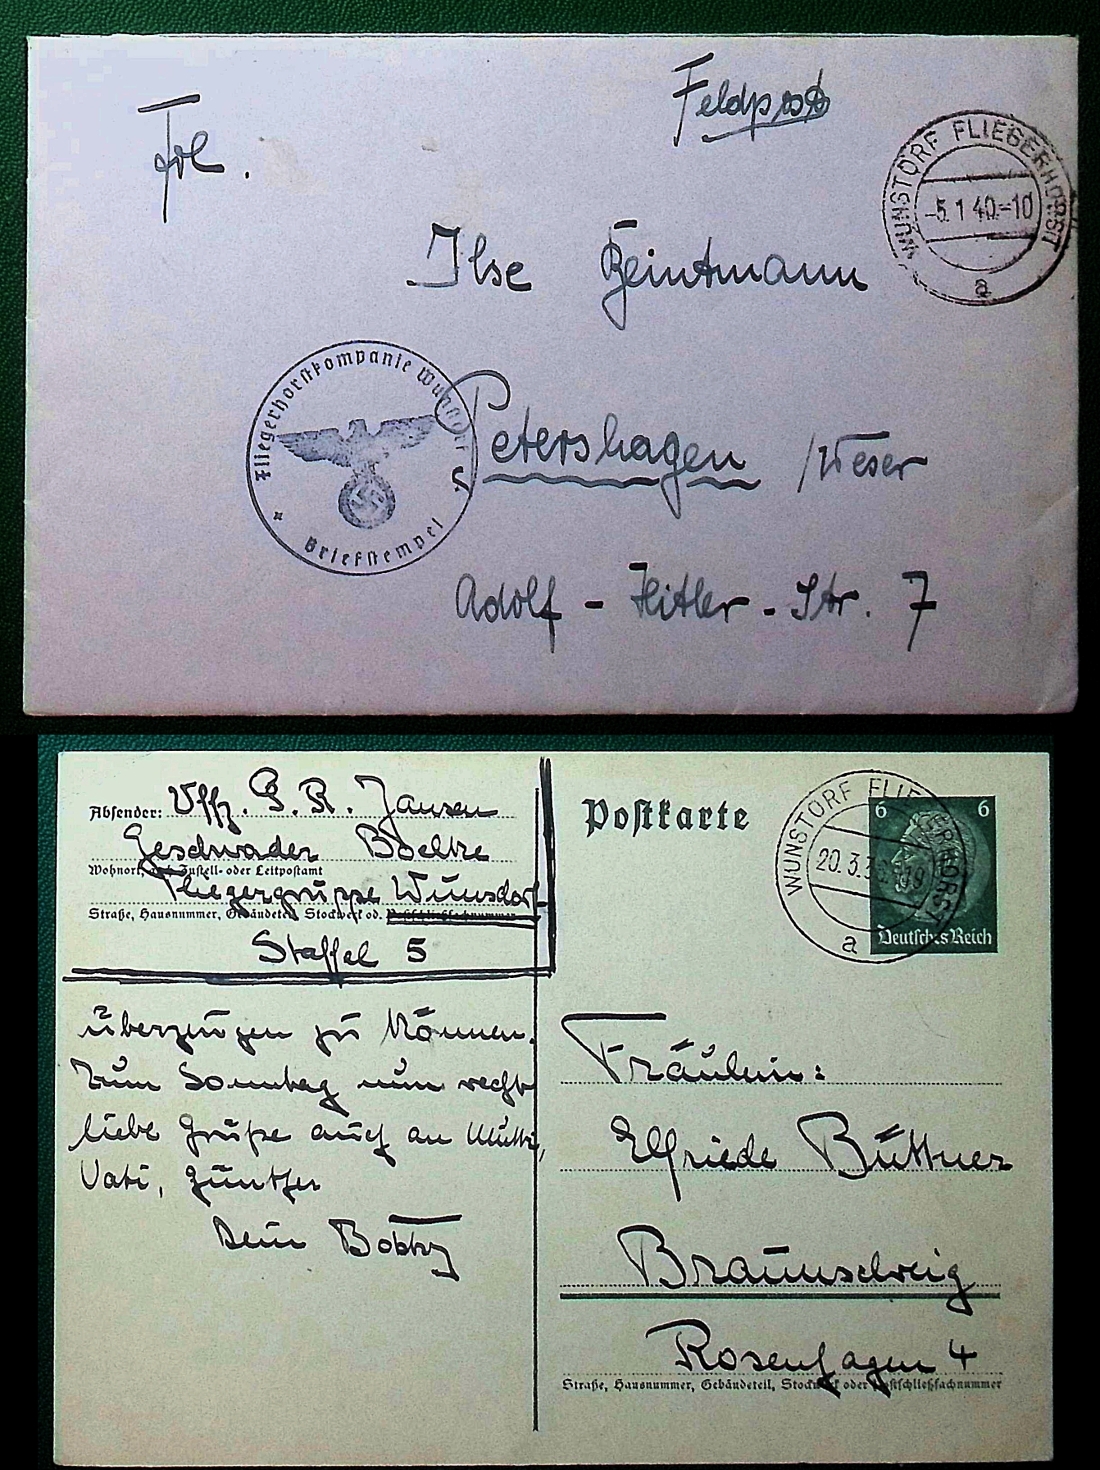 Feldpost
Frl.
WUNSTORF FLIEGERHORST
-5.1.40.-10
a
Ilse Beintmann
Fliegerhorstkompanie Wunstorf
Briefstempel
Petershagen /Weser
Adolf-Hitler-Str. 7
Absender: Uffz. G. R. Jansen
Geschwader Boelke
Wohnort, auch Zustell- oder Leitpostamt
Fliegergruppe Wunsdorf
Straße, Hausnummer, Gebäudeteil, Stockwerk od. Postschließfachnummer
Staffel 5
überzeugen zu können.
Zum Sonntag nun recht
liebe Grüße auch an Mutti,
Vati, Günther
Dein Bobby
Postkarte
WUNSTORF FLIEGERHORST
20.3.3
19
a
6 6
Deutsches Reich
Fräulein:
Elfriede Büttner
Braunschweig
Rosenhagen 4
Straße, Hausnummer, Gebäudeteil, Stockwerk oder Postschließfachnummer